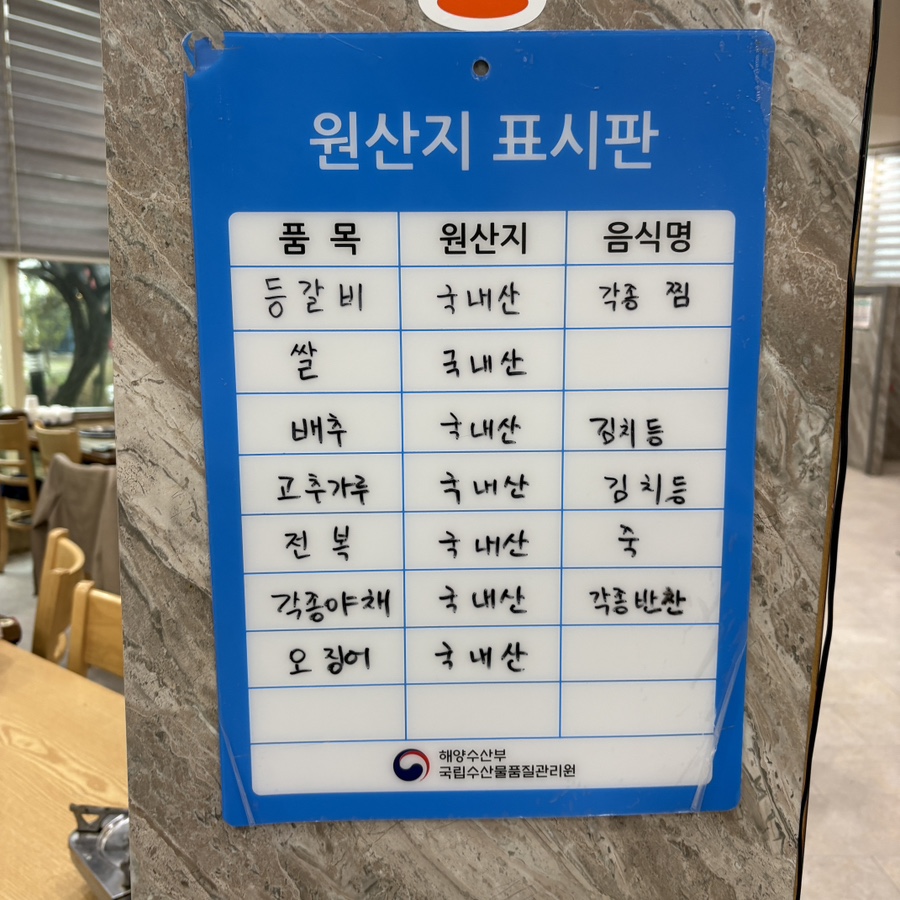 원산지 표시판
품 목 원산지 음식명
등갈비 국내산 각종 찜
쌀 국내산
배추 국내산 김치등
고추가루 국내산 김치등
전복 국내산 죽
각종야채 국내산 각종반찬
오징어 국내산
해양수산부
국립수산물품질관리원